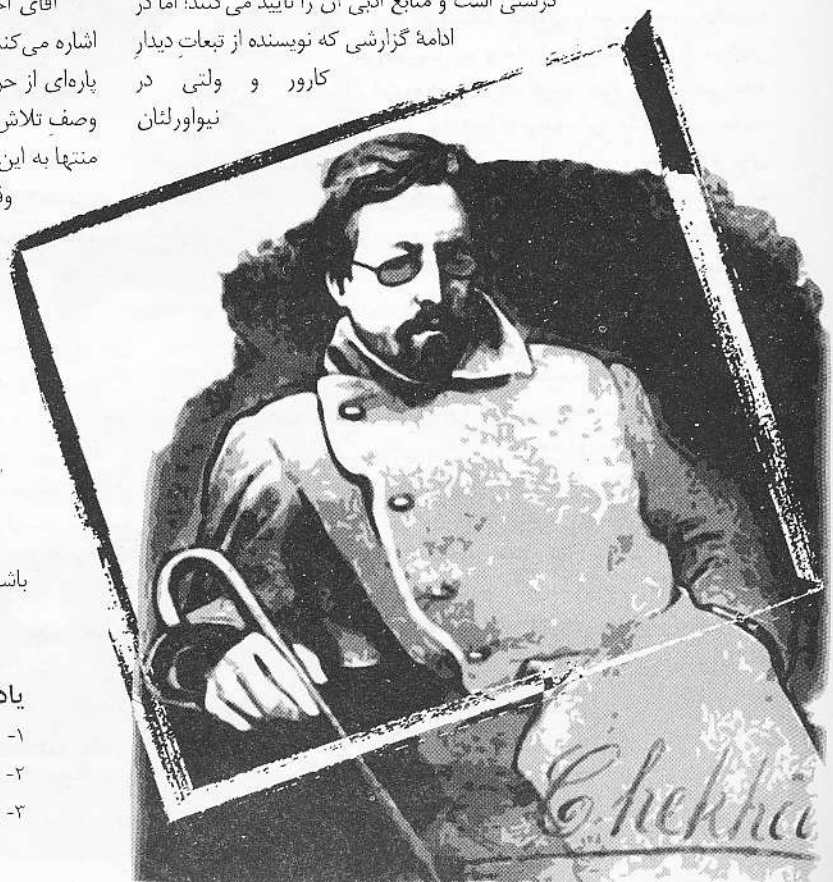 درستی است و منابع ادبی آن را تایید می‌کنند؛ اما در
ادامهٔ گزارشی که نویسنده از تبعاتِ دیدارِ
کارور و ولتی در
نیواورلئان
آقای
اشاره می‌کند
پاره‌ای از
وصفِ تلاش
منتها به این
۱-
۲-
۳-